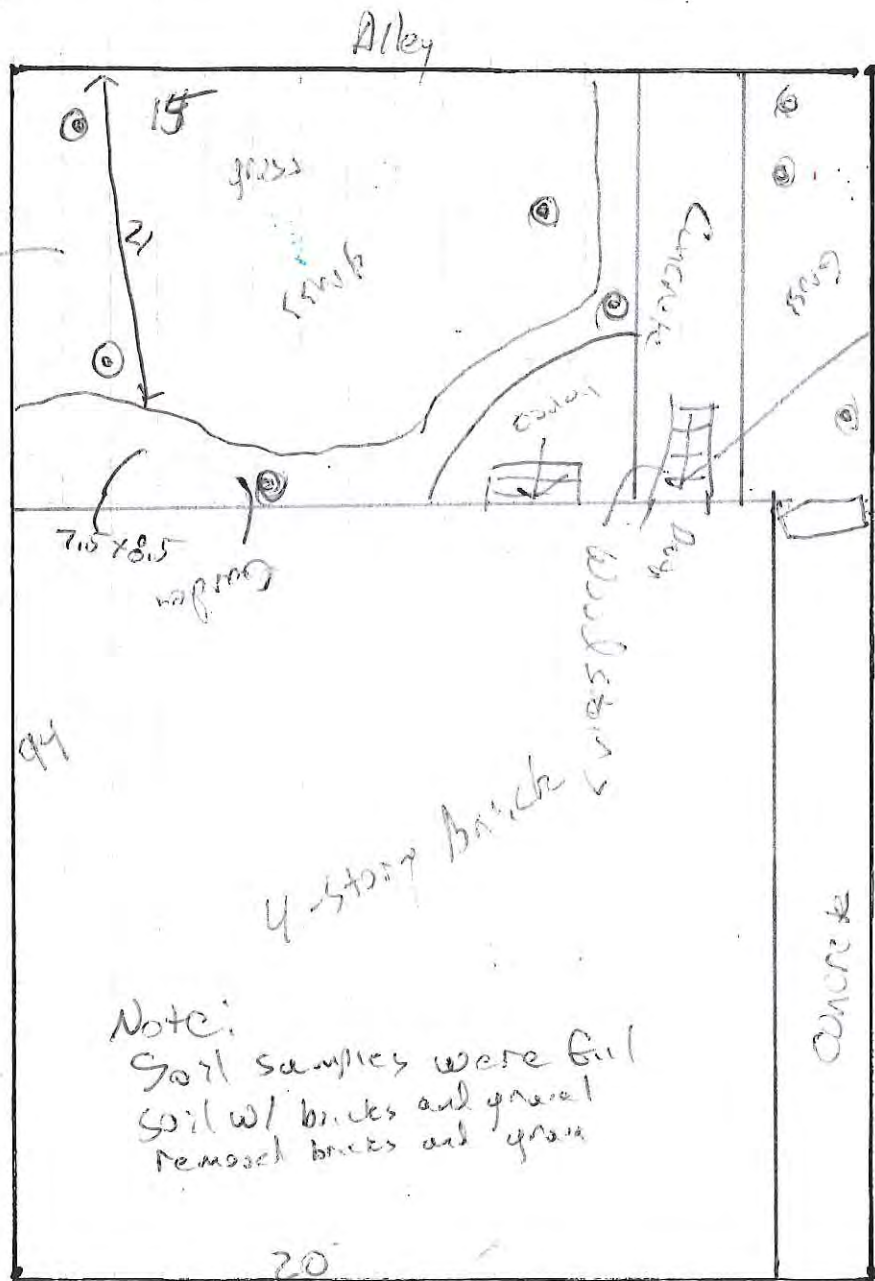 Alley
15
grass
21
grass
Concrete
Grass
7.5 x 8.5
Garden
Wood stairs
94
4-story Brick
Concrete
Note:
Soil samples were fill
soil w/ bricks and gravel
removed bricks and
20